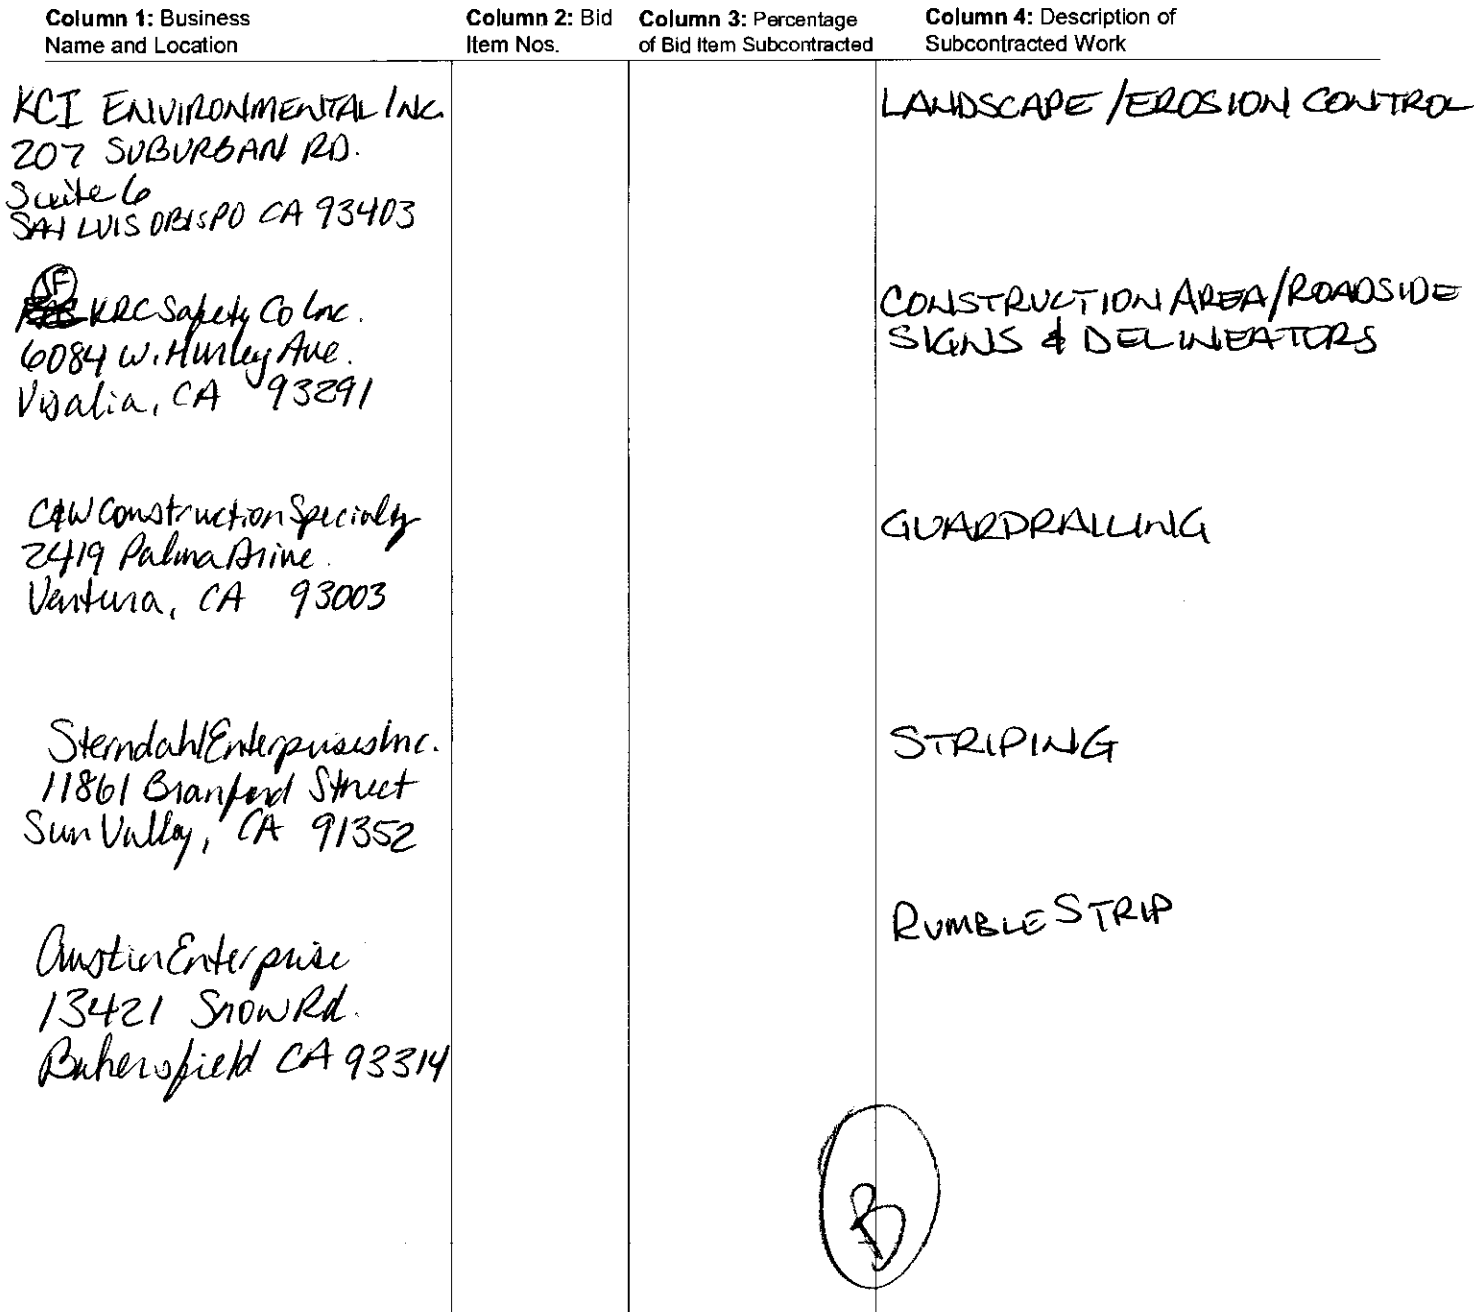 Column 1: Business
Name and Location
Column 2: Bid
Item Nos.
Column 3: Percentage
of Bid Item Subcontracted
Column 4: Description of
Subcontracted Work
KCI ENVIRONMENTAL INC.
207 SUBURBAN RD.
Suite 6
SAN LUIS OBISPO CA 93403
LANDSCAPE / EROSION CONTROL
KRC Safety Co Inc.
6084 W. Hurley Ave.
Visalia, CA 93291
CONSTRUCTION AREA/ROADSIDE
SIGNS & DELINEATORS
C&W Construction Specialty
2419 Palma Drive.
Ventura, CA 93003
GUARDRAILING
Sterndahl Enterprises Inc.
11861 Branford Street
Sun Valley, CA 91352
STRIPING
Austin Enterprise
13421 Snow Rd.
Bakersfield CA 93314
RUMBLE STRIP
B